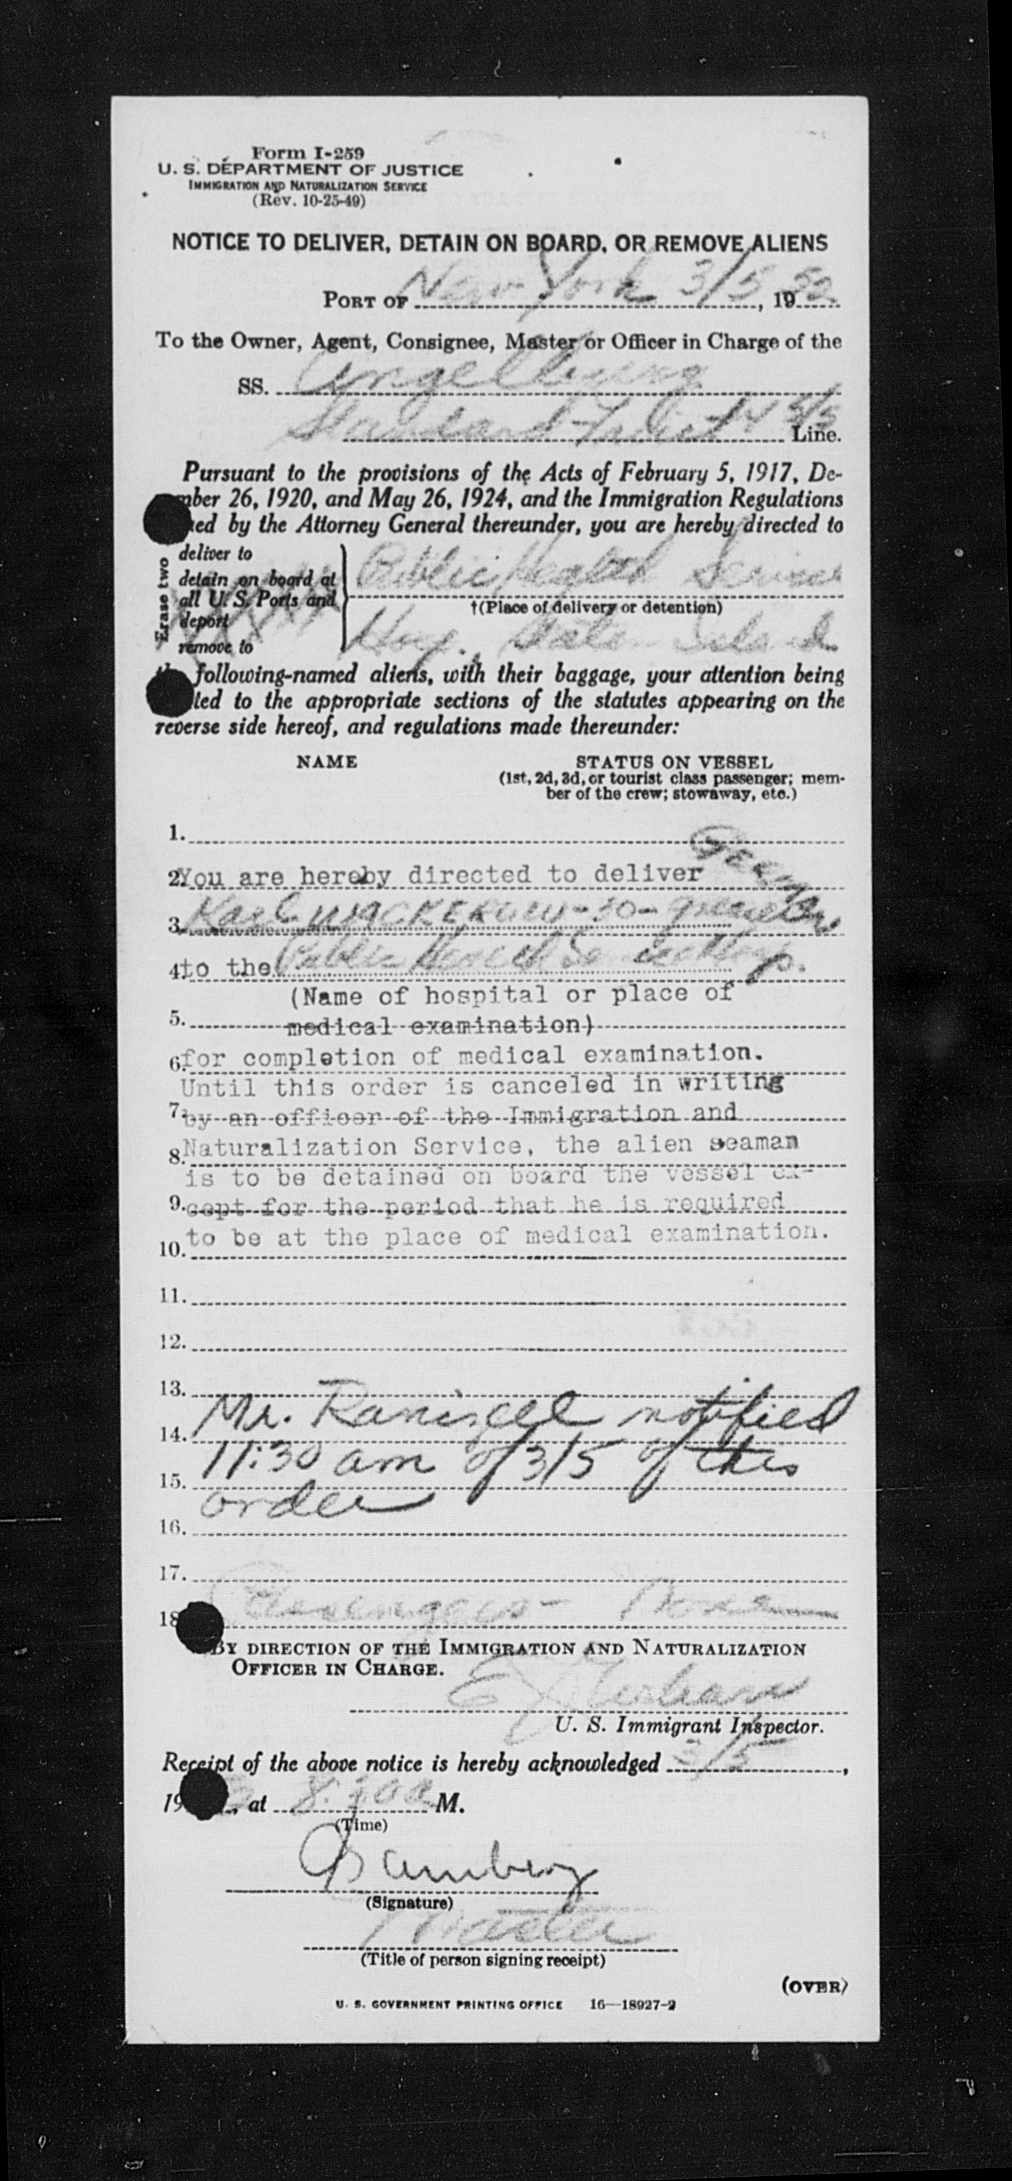 Form I-259
U. S. DEPARTMENT OF JUSTICE
IMMIGRATION AND NATURALIZATION SERVICE
(Rev. 10-25-49)
NOTICE TO DELIVER, DETAIN ON BOARD, OR REMOVE ALIENS
PORT OF New York 3/5, 1952
To the Owner, Agent, Consignee, Master or Officer in Charge of the
SS. Angelburg
Standard Fruit Line.
Pursuant to the provisions of the Acts of February 5, 1917, De-
mber 26, 1920, and May 26, 1924, and the Immigration Regulations
ed by the Attorney General thereunder, you are hereby directed to
Erase two
deliver to
detain on board at
all U. S. Ports and
deport
remove to
Public Health Service
†(Place of delivery or detention)
Hosp. Staten Island
following-named aliens, with their baggage, your attention being
led to the appropriate sections of the statutes appearing on the
reverse side hereof, and regulations made thereunder:
NAME STATUS ON VESSEL
(1st, 2d, 3d, or tourist class passenger; mem-
ber of the crew; stowaway, etc.)
1.
2. You are hereby directed to deliver
3. Karl
4. to the Public Hosp.
(Name of hospital or place of
5. medical examination)
6. for completion of medical examination.
Until this order is canceled in writing
7. by an officer of the Immigration and
8. Naturalization Service, the alien seaman
is to be detained on board the vessel ex-
9. cept for the period that he is required
10. to be at the place of medical examination.
11.
12.
13.
14. Mr. notified
15. 11:30 am of 3/5 of this
16. order
17.
18 Passengers - None
BY DIRECTION OF THE IMMIGRATION AND NATURALIZATION
OFFICER IN CHARGE.
U. S. Immigrant Inspector.
Receipt of the above notice is hereby acknowledged 3/5,
19, at M.
(Time)
(Signature)
Master
(Title of person signing receipt)
(OVER)
U. S. GOVERNMENT PRINTING OFFICE 16—18927-2